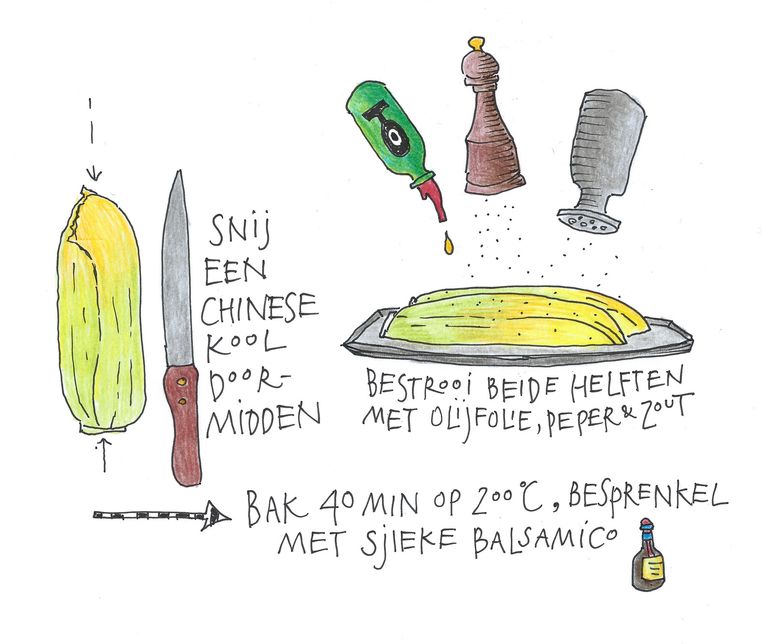 SNIJ
EEN
CHINESE
KOOL
DOOR-
MIDDEN
BESTROOI BEIDE HELFTEN
MET OLIJFOLIE, PEPER & ZOUT
BAK 40 MIN OP 200°C, BESPRENKEL
MET SJIEKE BALSAMICO